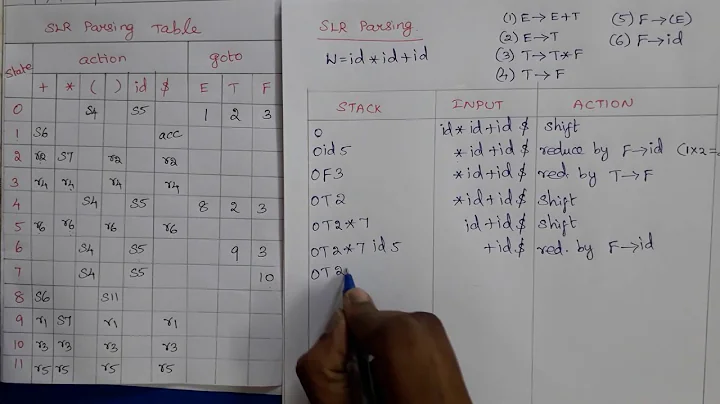 SLR Parsing Table
State action goto
+ * ( ) id $ E T F
0 S4 S5 1 2 3
1 S6 acc
2 r2 S7 r2 r2
3 r4 r4 r4 r4
4 S4 S5 8 2 3
5 r6 r6 r6 r6
6 S4 S5 9 3
7 S4 S5 10
8 S6 S11
9 r1 S7 r1 r1
10 r3 r3 r3 r3
11 r5 r5 r5 r5
SLR Parsing
W=id*id+id
(1) E→E+T (5) F→(E)
(2) E→T (6) F→id
(3) T→T*F
(4) T→F
STACK INPUT ACTION
0 id*id+id$ shift
0id5 *id+id$ reduce by F→id (1x2=
0F3 *id+id$ red. by T→F
0T2 *id+id$ shift
0T2*7 id+id$ shift
0T2*7id5 +id$ red. by F→id
0T2